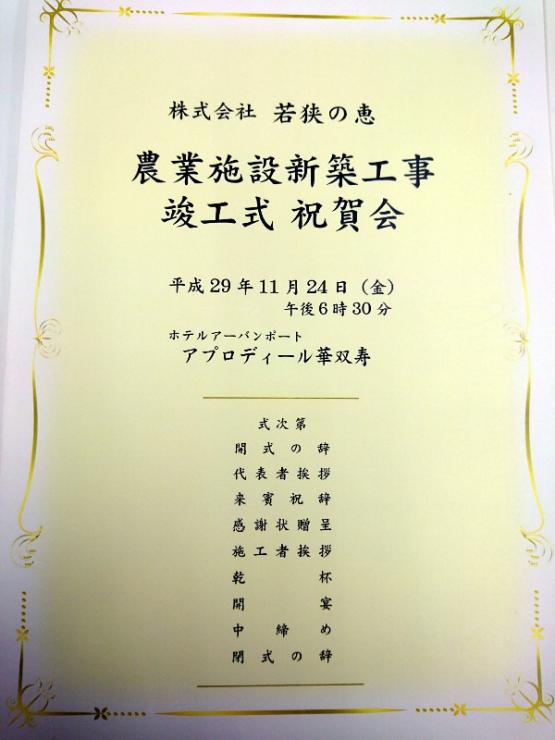 株式会社 若狭の恵
農業施設新築工事
竣工式 祝賀会
平成29年11月24日（金）
午後6時30分
ホテルアーバンポート
アプロディール華双寿
式次第
開式の辞
代表者挨拶
来賓祝辞
感謝状贈呈
施工者挨拶
乾杯
開宴
中締め
閉式の辞